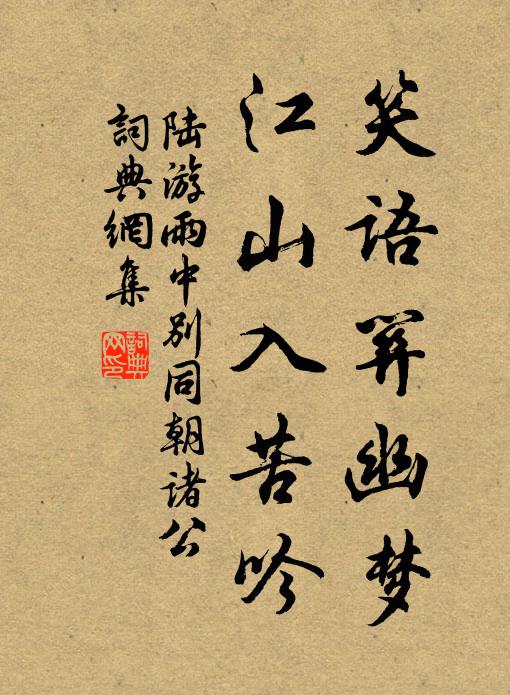 笑語關幽梦
江山入苦吟
陆游雨中别同朝诸公
詞典網集
詞典网印